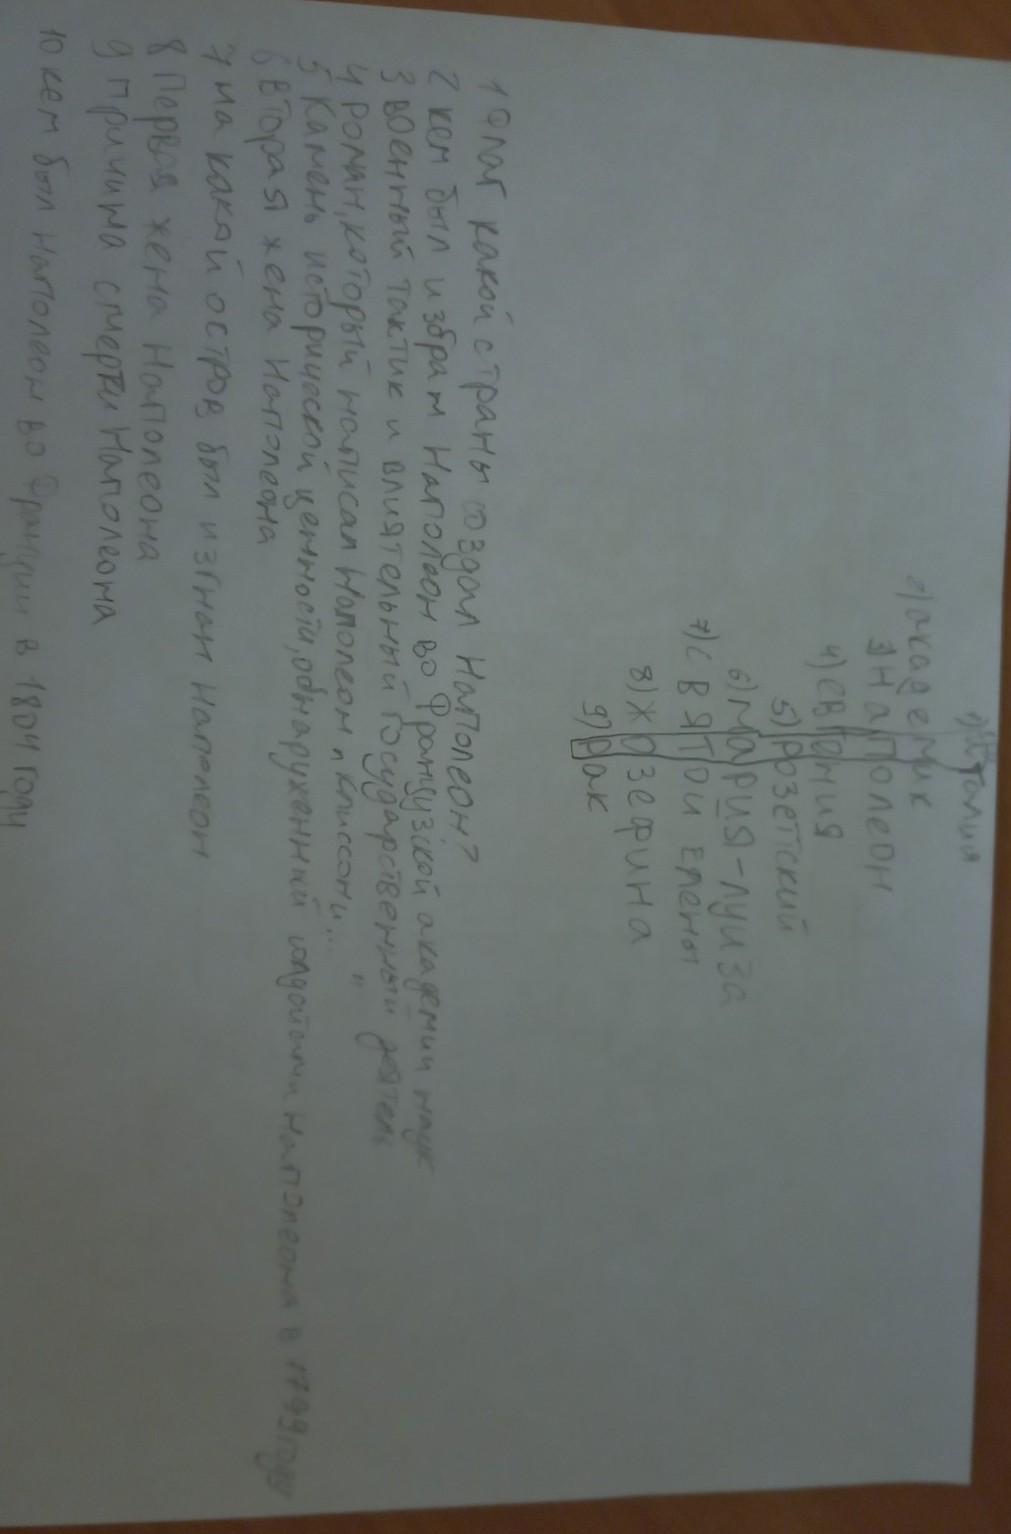 1) Италия
2) академик
3) Наполеон
4) евгения
5) Розетский
6) Мария-луиза
7) Святой елены
8) Жозефина
9) Рак
1 Флаг какой страны создал Наполеон?
2 кем был избран Наполеон во Французской академии наук
3 военный тактик и влиятельный государственный деятель
4 роман, который написал Наполеон "Клиссон и... "
5 Камень исторической ценности, обнаруженный солдатами Наполеона в 1799 году
6 вторая жена Наполеона
7 на какой остров был изгнан Наполеон
8 Первая жена Наполеона
9 причина смерти Наполеона
10 кем был Наполеон во Франции в 1804 году